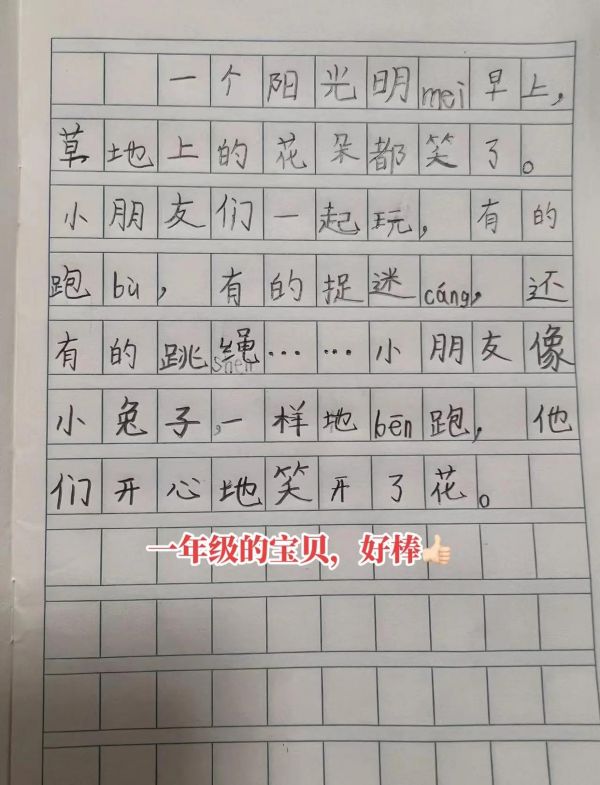 一个阳光明mei早上,
草地上的花朵都笑了。
小朋友们一起玩,有的
跑bù,有的捉迷cáng,还
有的跳绳……小朋友像
小兔子,一样地bēn跑,他
们开心地笑开了花。
一年级的宝贝，好棒👍🏻